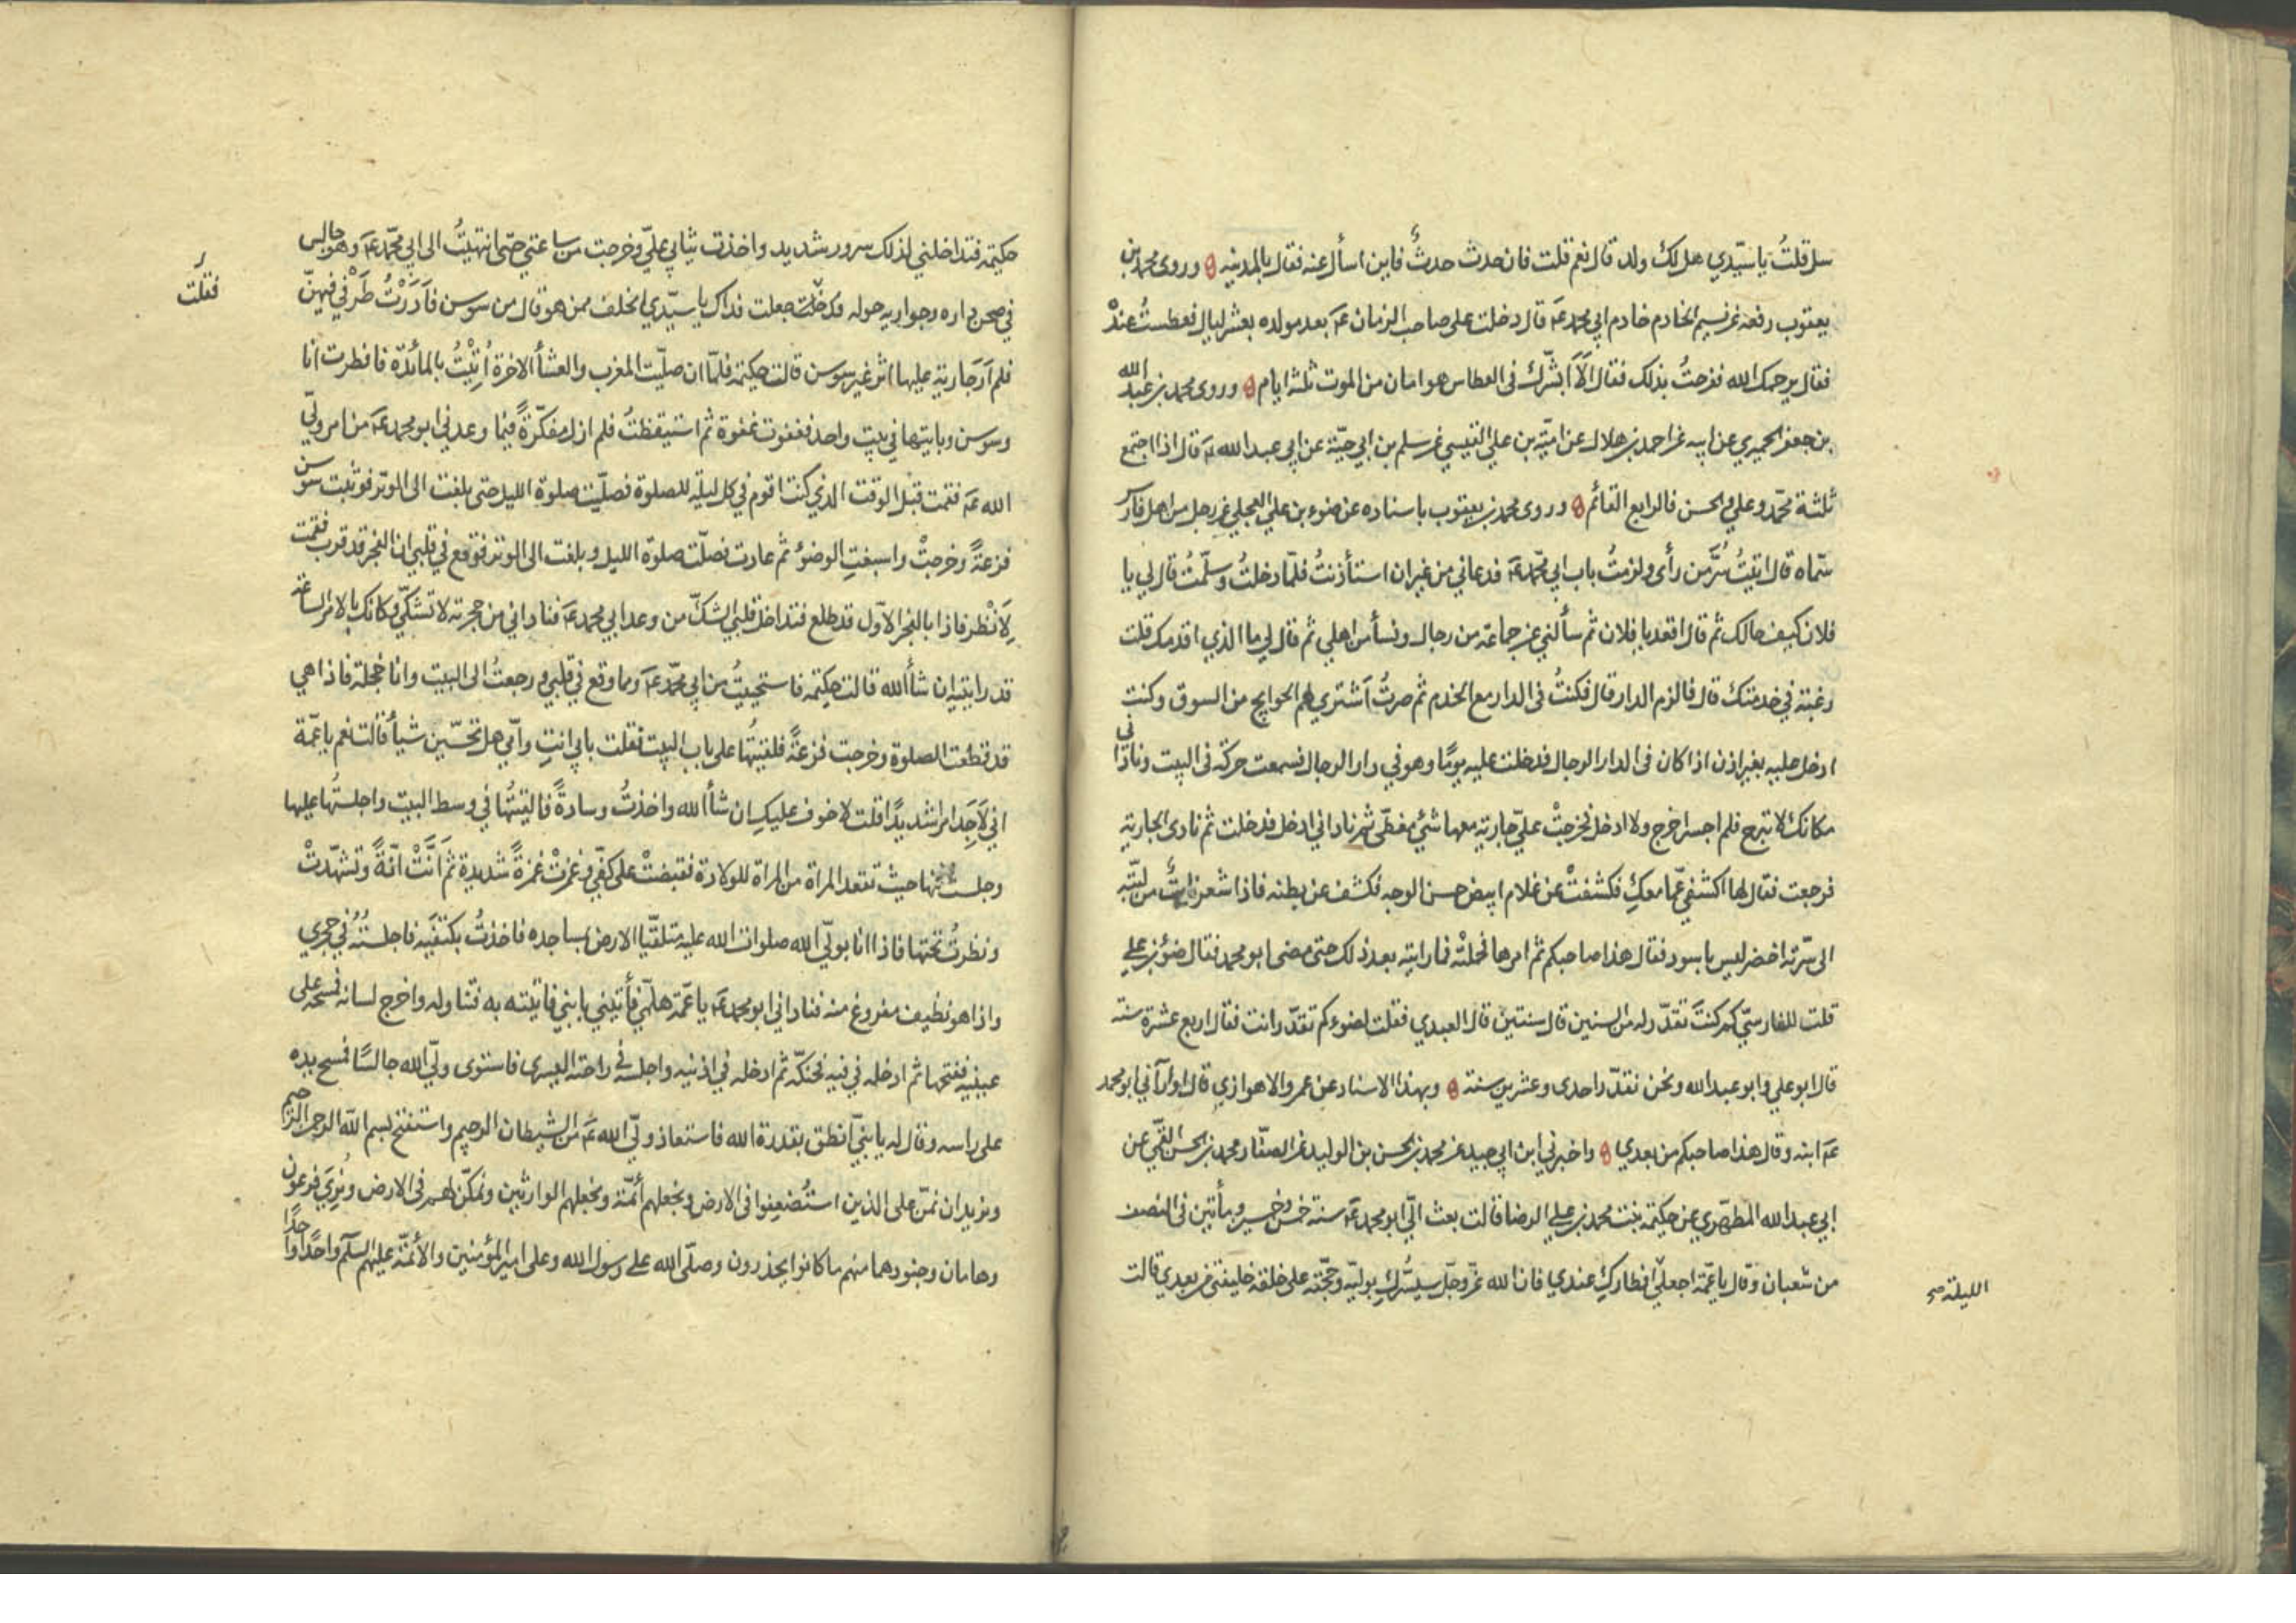 سل قلتُ يا سيّدي هل لك ولد قال نعم قلت فان حدث حدثٌ فاين اسأل عنه فقال بالمدينه وروى محمد بن
يعقوب رفعه عن نسيم الخادم خادم ابي محمد عَ قال دخلت على صاحب الزمان عَ بعد مولده بعشر ليال فعطستُ عندْ
فقال يرحمك الله ففرحتُ بذلك فقال اَلَا اَبشّرك فى العطاس هو امان من الموت ثلثة ايام وروى محمد بن عبد الله
بن جعفر الحميري عن ابيه عن احمد بن هلال عن اميّة بن علي القيسي عن سلم بن ابي حيّة عن ابي عبد الله عَ قال اذا اجتمع
ثلثة محمّد وعلي والحسن فالرابع القائم وروى محمد بن يعقوب باسناده عن ضوء بن علي العجلي عن رجل من اهل فارس
سمّاه قال اتيتُ سُرَّمن رأى ولزمتُ باب ابي محمّد عَ فدعاني من غير ان استأذنتُ فلمّا دخلتُ وسلّمتُ قال لي يا
فلان كيف حالك ثم قال اقعد يا فلان ثم سألني عن جماعة من رجال ونسأ من اهلي ثم قال لي ما الذي اقدمك قلت
رغبة في خدمتك قال فالزم الدار قال فكنتُ فى الدار مع الخدم ثم صرتُ اَشتري لهم الحوايج من السوق وكنت
ادخل عليه بغير اذن اذا كان فى الدار الرجال فدخلت عليه يومًا وهو في دار الرجال فسمعت حركة فى البيت وناداني
مكانك لا تبرح فلم اجسر اخرج ولا ادخل فخرجتْ عليّ جارية معها شئ مغطّى ثم ناداني ادخل فدخلت ثم نادى الجارية
فرجعت فقال لها اكشفي عمّا معكِ فكشفتْ عن غلام ابيض حسن الوجه فكشف عن بطنه فاذا شعر نابتٌ من لبّته
الى سرّته اخضر ليس باسود فقال هذا صاحبكم ثم امرها فحملتْه فما رايته بعد ذلك حتى مضى ابو محمد فقال ضؤ بن علي
قلت للفارسيّ كم كنتَ تقدّر له من السنين قال سنتين قال العبدي فقلت لضوء كم تقدّر انت فقال اربع عشرة سنة
قال ابو علي وابو عبد الله ونحن نقدّر احدى وعشرين سنة وبهذا الاسناد عن عمرو الاهوازي قال اراني ابو محمد
عَ ابنه وقال هذا صاحبكم من بعدي واخبرني ابن ابي جيد عن محمد بن الحسن بن الوليد عن الصفّار محمد بن الحسن القمّي عن
ابي عبد الله المطهّري عن حكيمة بنت محمد بن علي الرضا قالت بعث اليّ ابو محمد عَ سنة خمس وخمسين ومأتين فى النصف
من شعبان وقال يا عمّة اجعلي افطاركِ عندي فان الله عزّ وجلّ سيسُرّكِ بوليّه وحجّته على خلقه خليفتي من بعدي قالت
الليلة صح
حكيمة فتداخلني لذلك سرور شديد واخذت ثيابي عليّ وخرجت من ساعتي حتى انتهيتُ الى ابي محمّد عَ وهو جالس
في صحن داره وجواريه حوله جعلت فداك يا سيّدي الخلف ممن هو قال من سوسن فاَدَرْتُ طَرْفي فيهنّ
فقلت
فلم اَرَ جارية عليها اثر غير سوسن قالت حكيمة فلمّا ان صلّيت المغرب والعشأ الاخرة اُتِيْتُ بالمائدة فافطرت انا
وسوسن وبايتها في بيت واحد فغفوت غفوة ثم استيقظتُ فلم ازل مفكّرةً فيما وعدني ابو محمد عَ من امر وليّ
الله عَ فقمت قبل الوقت الذي كنت اقوم في كل ليله للصلوة فصلّيت صلوة الليل حتى بلغت الى الوتر فوثبت سوسن
فزعةً وخرجتْ واسبغتِ الوضؤ ثم عادت فصلّت صلوة الليل وبلغت الى الوتر فوقع في قلبي ان الفجر قد قرب فقمت
لِاَنْظر فاذا بالفجر الاوّل قد طلع فتداخل قلبي الشكّ من وعد ابي محمد عَ فناداني من حجرته لا تشكّي وكانك بالامر الساعة
قد رايتيه ان شأ الله قالت حكيمة فاستحييتُ من ابي محمّد عَ وما وقع في قلبي ورجعتُ الى البيت وانا خجلة فاذا هي
قد قطعت الصلوة وخرجت فزعةً فلقيتُها على باب البيت فقلت بابي انتِ وامّي هل تحسّين شيأ قالت نعم يا عمّة
اني لَاَجِدَ امرا شديدًا قلت لا خوف عليكِ ان شأ الله واخذتُ وسادةً فالقيتُها في وسط البيت واجلستُها عليها
وجلست منها حيث تقعد المراة من المراة للولادة فقبضتْ على كفّي وغمزتْ غمزةً شديدة ثم اَنَّتْ انّةً وتشهّدتْ
ونظرتُ تحتها فاذا انا بوليّ الله صلوات الله عليه متلقّيا الارض بمساجده فاخذتُ بكتفَيه فاجلستُهُ في حجري
واذا هو نظيف مفروغ منه فناداني ابو محمد عَ يا عمّة هلمّي فأتيني بابني فاتيته به فتناوله واخرج لسانه فمسحه على
عينيه ففتحها ثم ادخله في فيه فحنكّه ثم ادخله في اذنيه واجلسه في راحته اليسرى فاستوى وليّ الله جالسًا فمسح يده
على راسه وقال له يا بنيّ انطق بقدرة الله فاستعاذ وليّ الله عَ من الشيطان الرجيم واستفتح بسم الله الرحمن الرحيم
ونريد ان نمنّ على الذين استُضعِفوا فى الارض ونجعلهم أئمّة ونجعلهم الوارثين ونمكّن لهم فى الارض ونُرِيَ فرعون
وهامان وجنودهما منهم ما كانوا يحذرون وصلّى الله على رسول الله وعلى امير المؤمنين والأئمّة عليهم السلم واحدًا واحدًا